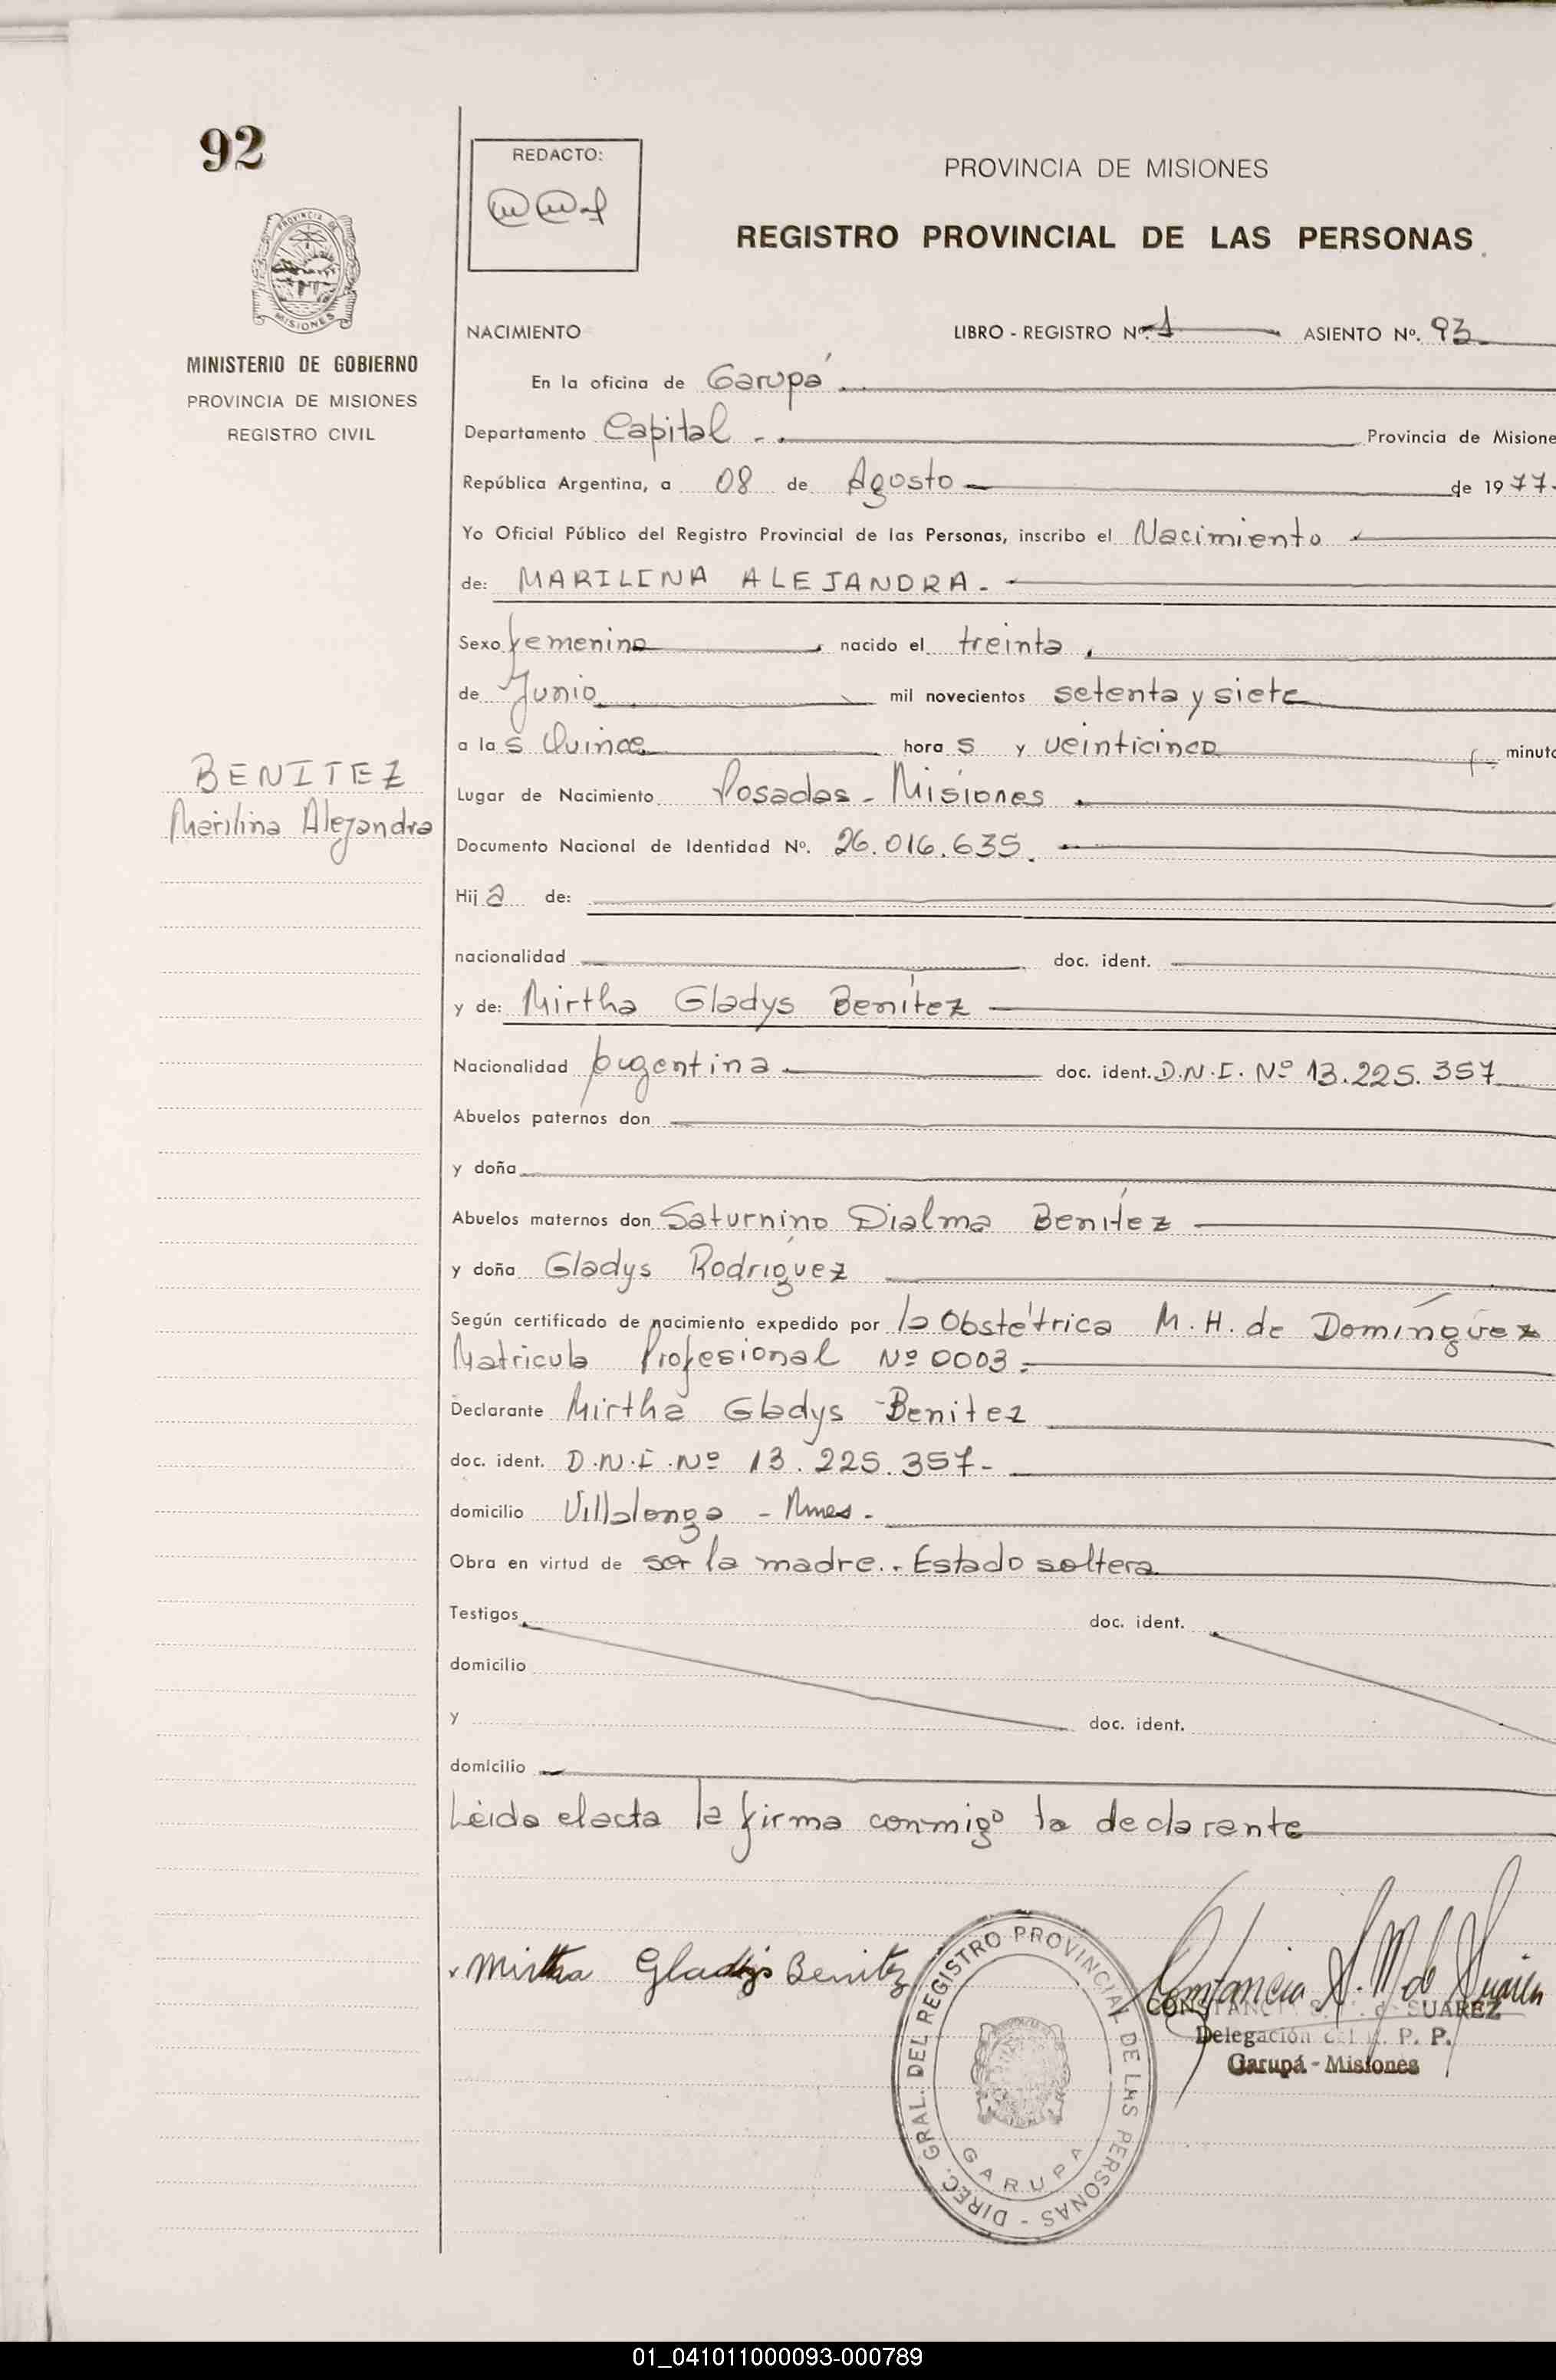 92
REDACTO:
PROVINCIA DE MISIONES
REGISTRO PROVINCIAL DE LAS PERSONAS
PROVINCIA DE
MISIONES
MINISTERIO DE GOBIERNO
PROVINCIA DE MISIONES
REGISTRO CIVIL
NACIMIENTO LIBRO - REGISTRO Nº. 1 ASIENTO Nº. 93
En la oficina de Garupá
Departamento Capital Provincia de Misione
República Argentina, a 08 de Agosto de 1977
Yo Oficial Público del Registro Provincial de las Personas, inscribo el Nacimiento
de: MARILINA ALEJANDRA.
Sexo femenino nacido el treinta
de Junio mil novecientos setenta y siete
a las Quince horas y veinticinco minuto
BENITEZ
Marilina Alejandra
Lugar de Nacimiento Posadas - Misiones
Documento Nacional de Identidad Nº. 26.016.635.
Hija de:
nacionalidad doc. ident.
y de: Mirtha Gladys Benítez
Nacionalidad Argentina doc. ident. D.N.I. Nº 13.225.357
Abuelos paternos don
y doña
Abuelos maternos don Saturnino Dialma Benítez
y doña Gladys Rodríguez
Según certificado de nacimiento expedido por la Obstétrica M. H. de Domínguez
Matricula Profesional Nº 0003
Declarante Mirtha Gladys Benitez
doc. ident. D.N.I. Nº 13.225.357-
domicilio Villalonga - Mnes -
Obra en virtud de ser la madre.. Estado soltera
Testigos doc. ident.
domicilio
y doc. ident.
domicilio
Leida el acta la firma conmigo la declarante
Mirtha Gladys Benitez
Constancia S. M. de Suárez
CONSTANCIA S. de SUAREZ
Delegación P. P.
Garupá - Misiones
DIREC. GRAL. DEL REGISTRO PROVINCIAL DE LAS PERSONAS -
GARUPA
01_041011000093-000789